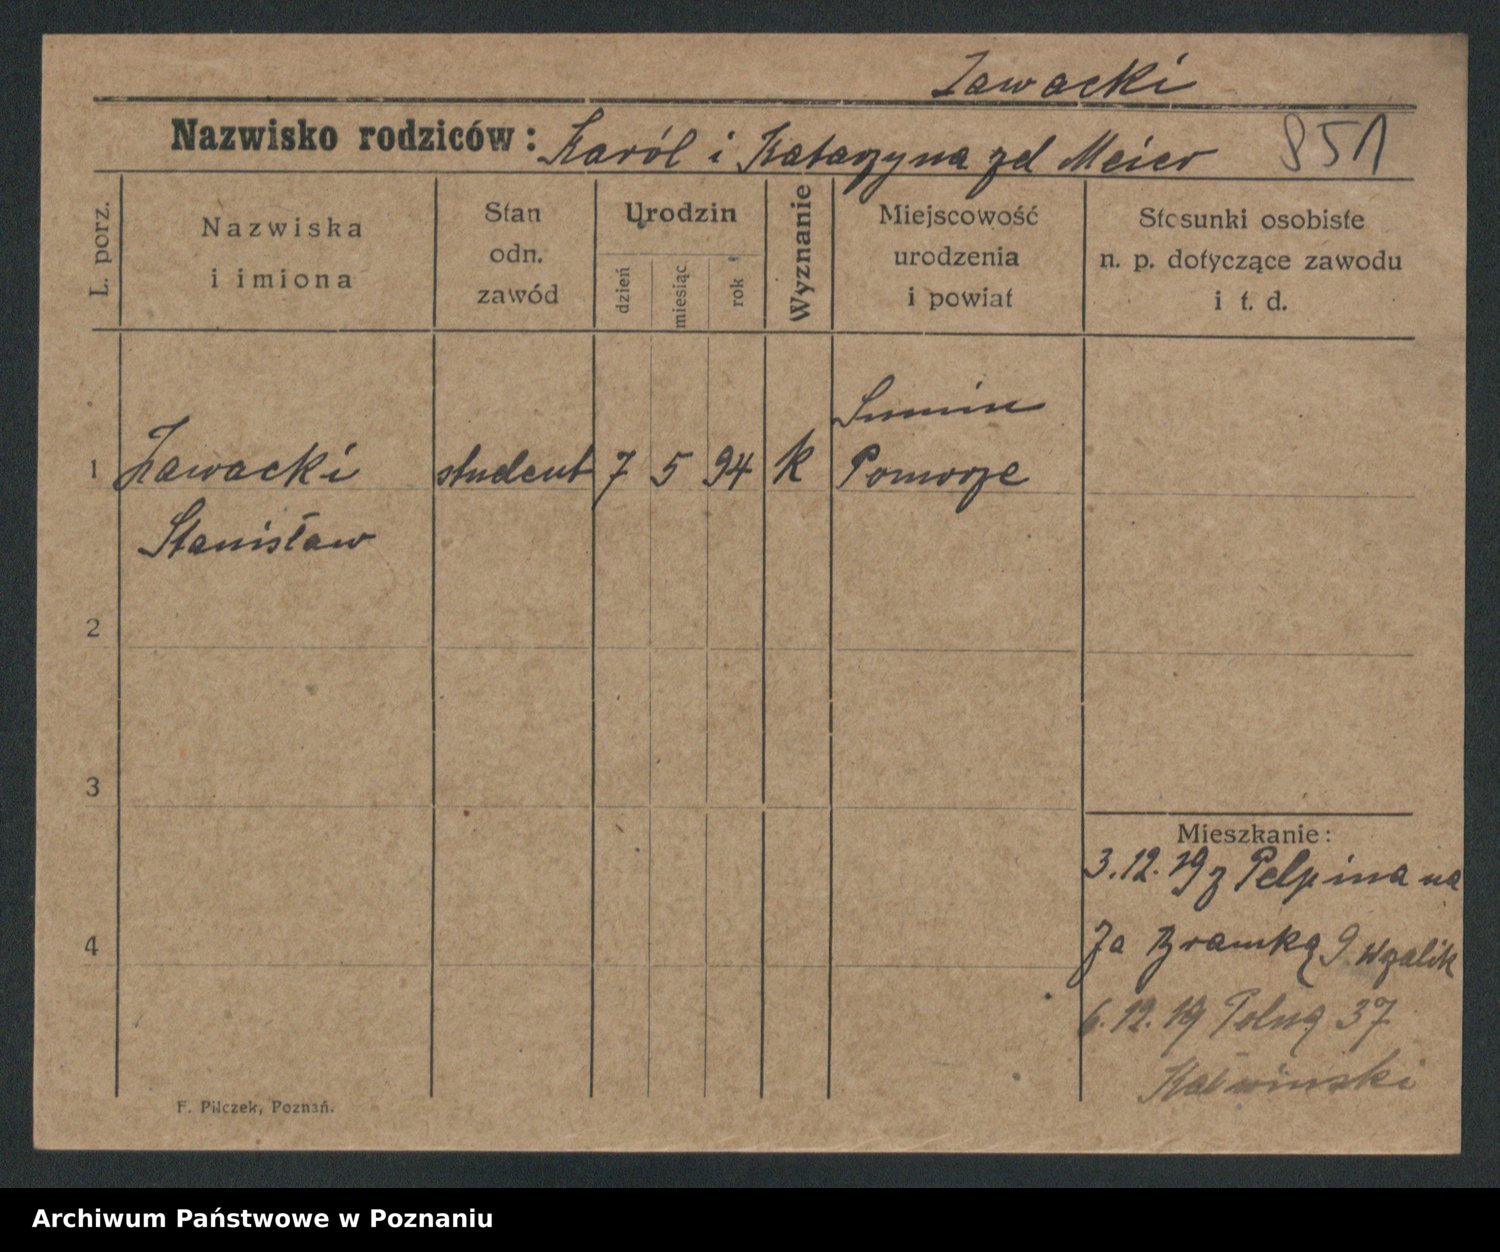 Zawacki
Nazwisko rodziców: Karól i Katarzyna zd Meier 851
L. porz.
Nazwiska
i imiona
Stan
odn.
zawód
Urodzin
dzień
miesiąc
rok
Wyznanie
Miejscowość
urodzenia
i powiat
Stosunki osobiste
n. p. dotyczące zawodu
i t. d.
Sumin
1 Zawacki student 7 5 94 k Pomorze
Stanisław
2
3
Mieszkanie:
3.12.19 z Pelpina na
4
Za Bramką 9 Wzalik
6.12.19 Polną 37
Kalwinski
F. Pilczek, Poznań.
Archiwum Państwowe w Poznaniu